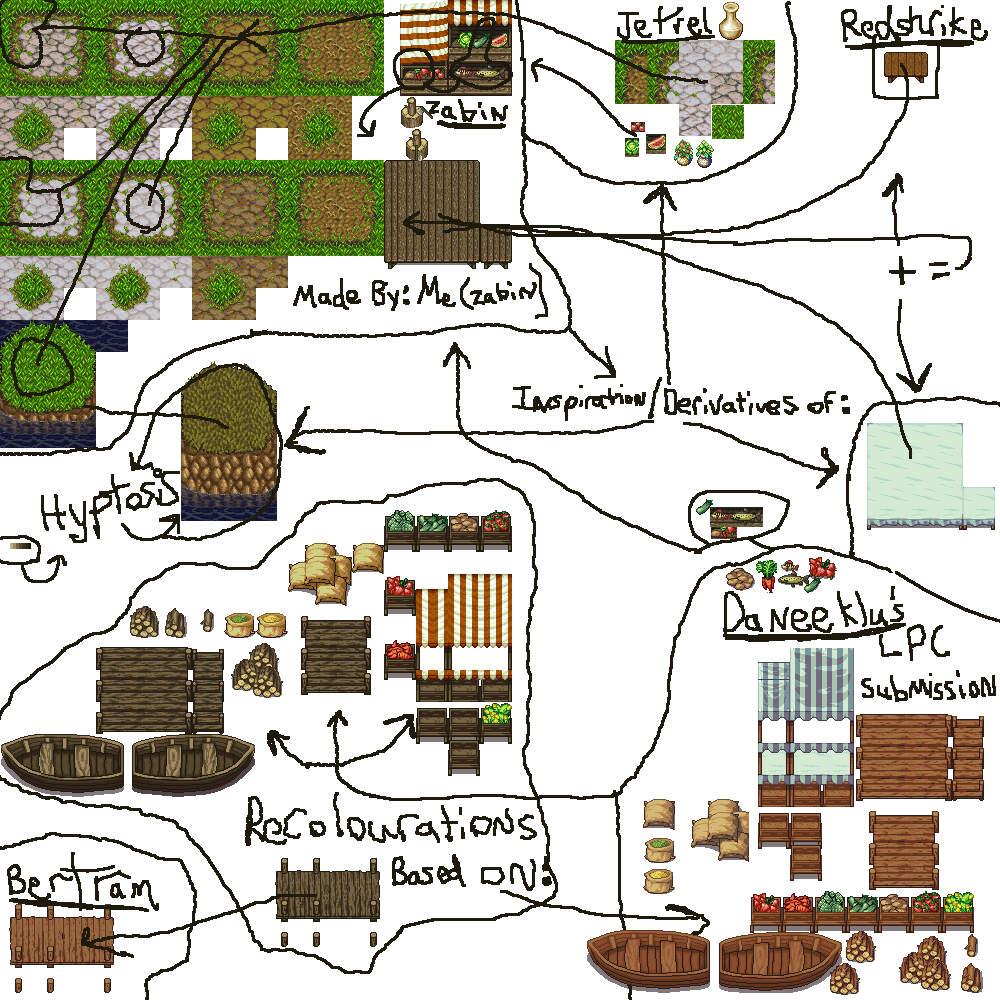 Jetrel
Redstrike
zabin
Made By: Me (zabin)
+ =
Inspiration / Derivatives of:
Hyptosis
Daneeklu's
LPC
submission
Recolourations
Based on:
Bertram